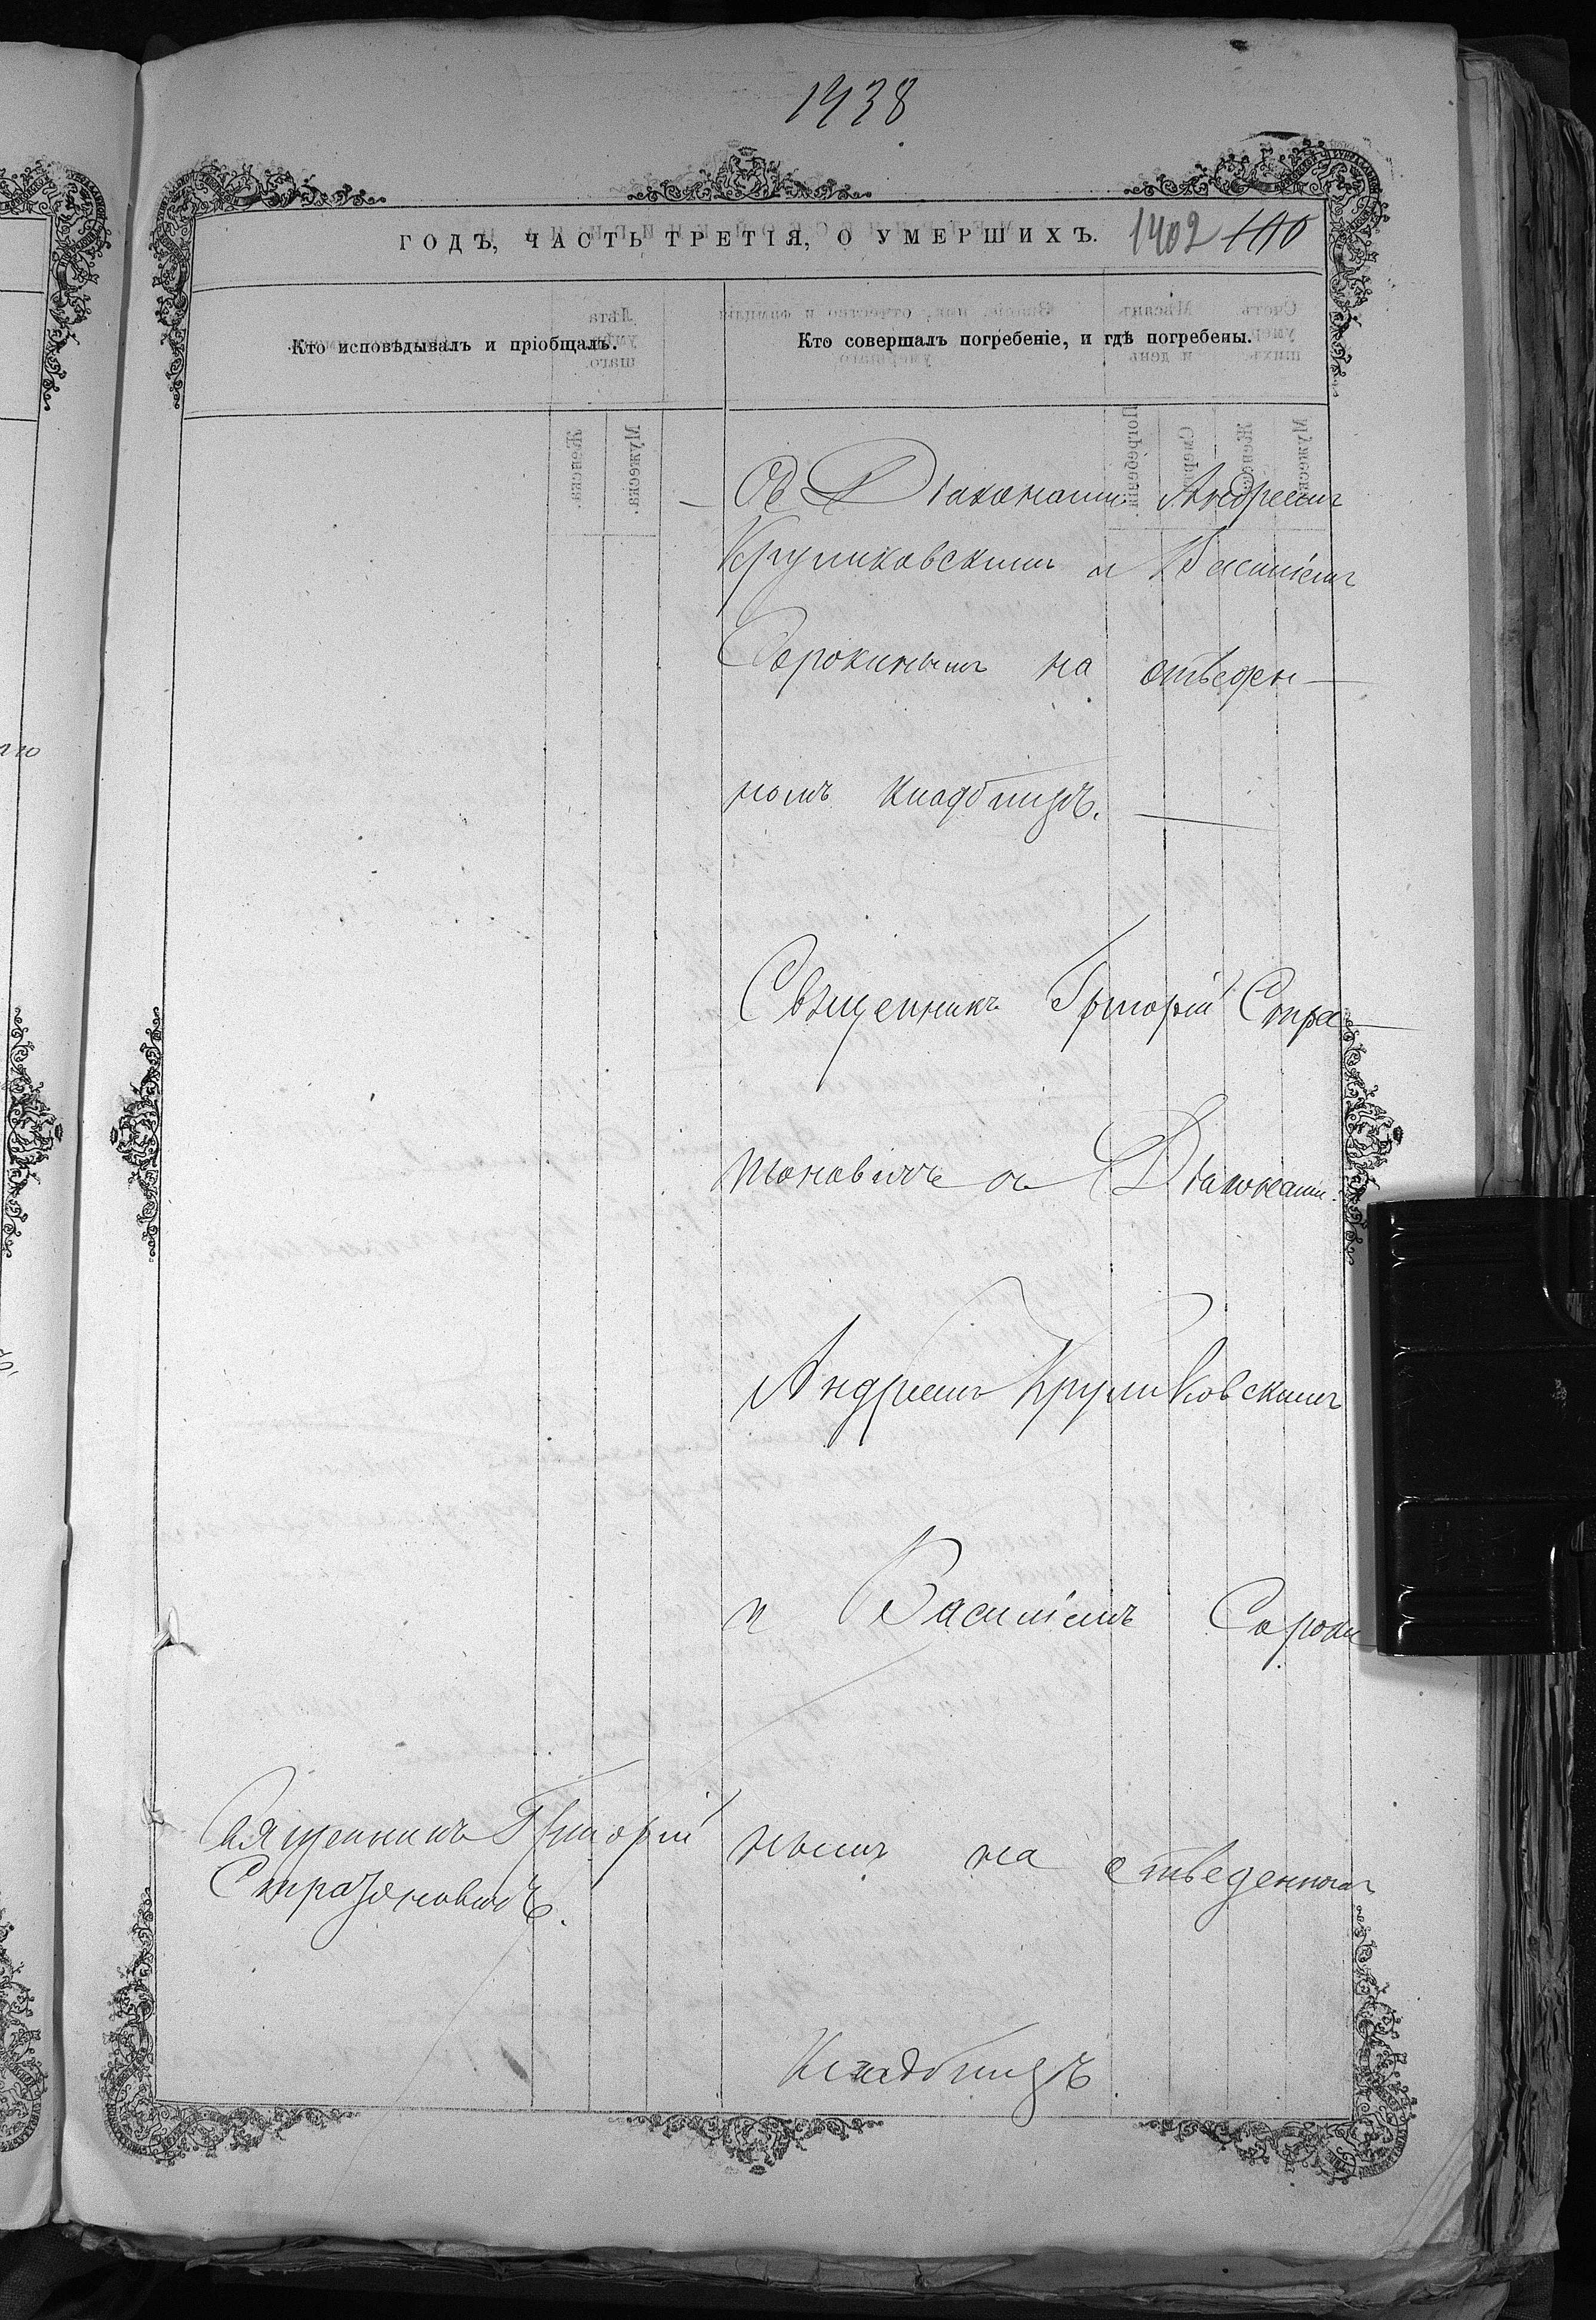 1938
ГОДЪ, ЧАСТЬ ТРЕТІЯ, О УМЕРШИХЪ. 1402 110
Кто исповѣдывалъ и пріобщалъ.
Кто совершалъ погребеніе, и гдѣ погребены.
Съ Діаконами Андреемъ
Круликовскимъ и Василіемъ
Сорокинымъ на отведен-
номъ кладбищѣ.
Священникъ Григорій Стра-
тоновичъ съ Діаконами
Андреемъ Круликовскимъ
и Василіемъ Сороки
нымъ на отведенномъ
Кладбищѣ
Священникъ Григорій
Стратоновичъ.